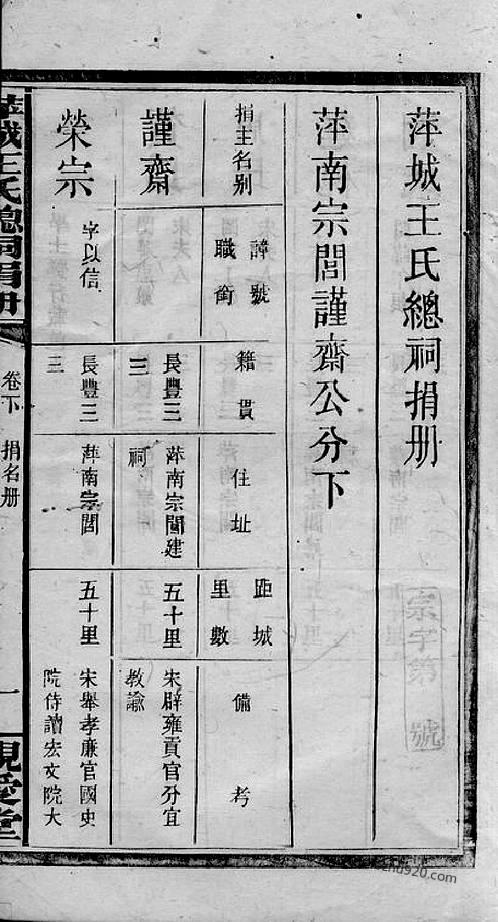 萍城王氏總祠捐册
宗字第 號
萍南宗閭謹齋公分下
捐主名别
諱號
職銜
籍貫
住址
距城
里數
備考
謹齋
長豐三
三
萍南宗閭建
祠
五十里
宋辟雍貢官分宜
教諭
榮宗
字以信
長豐三
三
萍南宗閭
五十里
宋舉孝廉官國史
院侍讀宏文院大
萍城王氏總祠捐册
卷下
捐名册
一
親愛堂